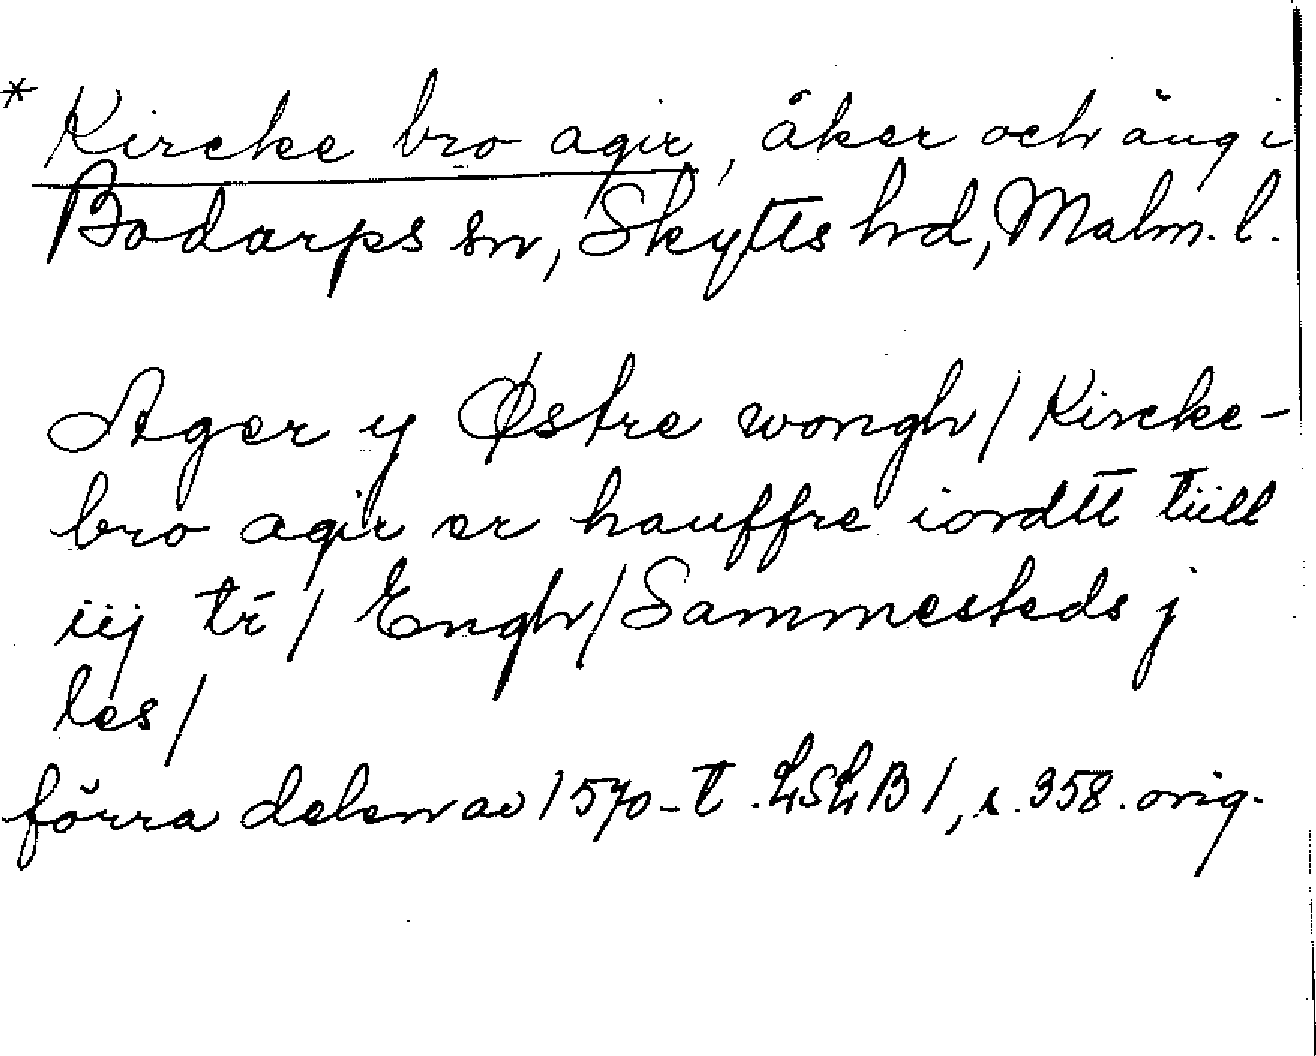 * Kircke bro agir, åker och äng i
Bodarps sn, Skytts hd, Malm. l.
Ager y Østre wongh / Kircke-
bro agir er hauffre iordtt tiill
iij tr / Engh / Sammesteds j
les /
förra delen av 1570-t. LSLB 1, s. 358. orig.